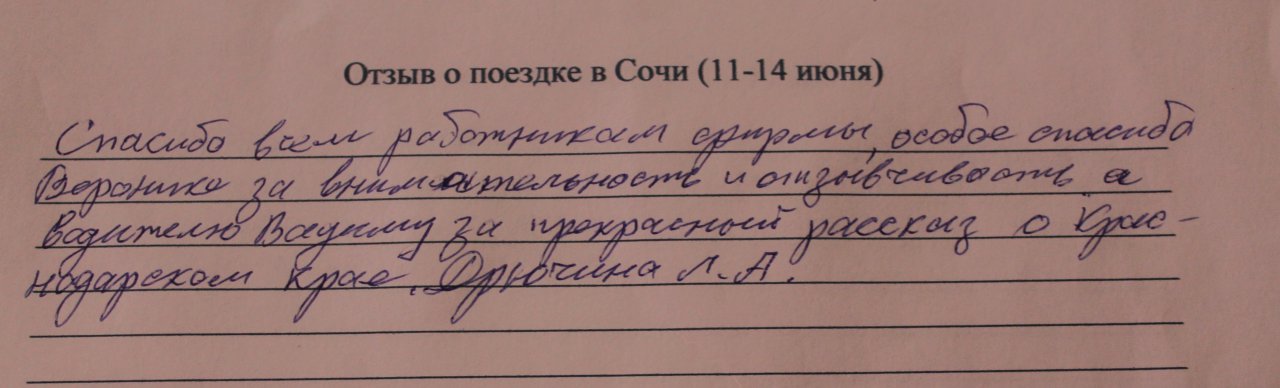 Отзыв о поездке в Сочи (11-14 июня)
Спасибо всем работникам фирмы, особое спасибо
Веронике за внимательность и отзывчивость а
водителю Вадиму за прекрасный рассказ о Крас-
нодарском крае. Дрючина Л.А.